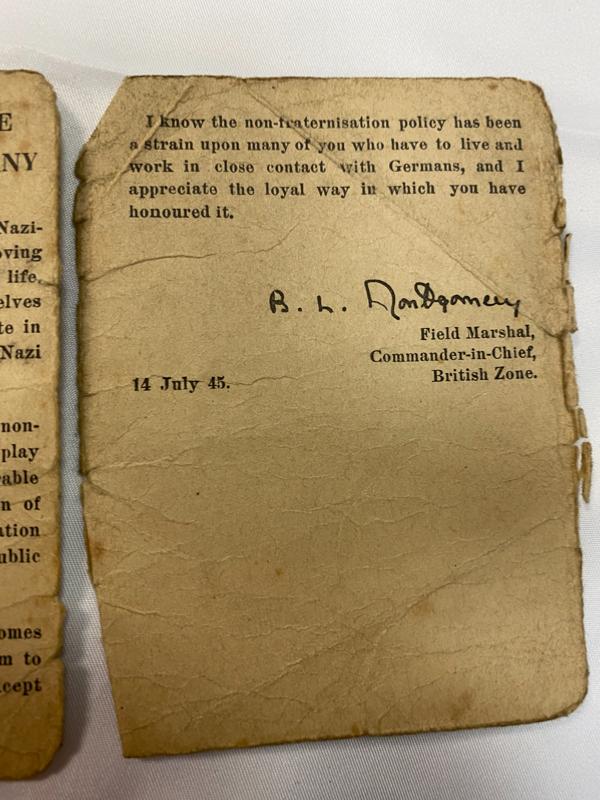 E
NY
Nazi-
oving
life,
elves
te in
Nazi
non-
play
able
n of
ation
ublic
omes
m to
cept
I know the non-fraternisation policy has been
a strain upon many of you who have to live and
work in close contact with Germans, and I
appreciate the loyal way in which you have
honoured it.
B. L. Montgomery
Field Marshal,
Commander-in-Chief,
British Zone.
14 July 45.